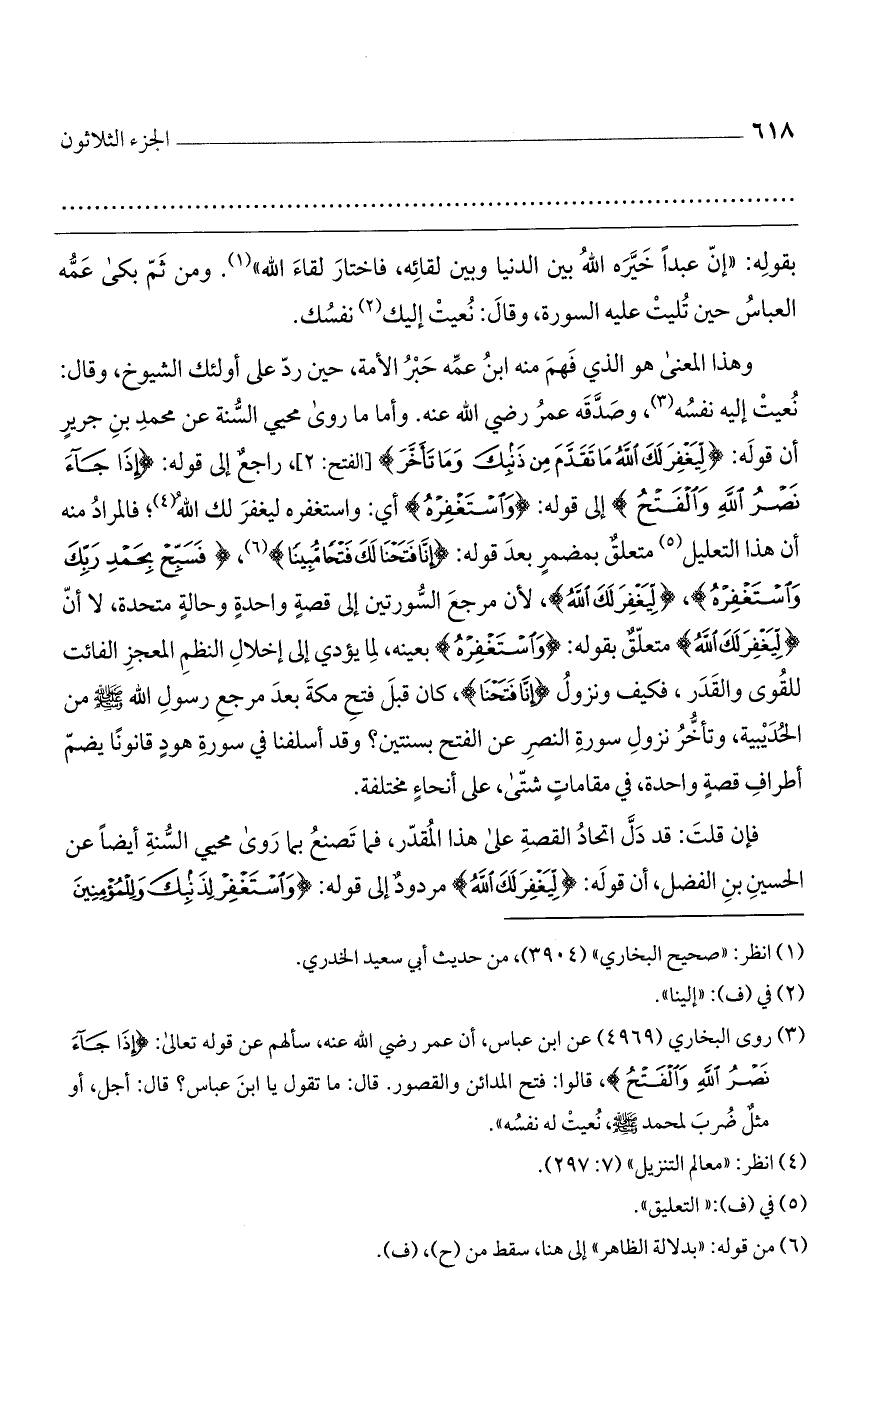 ٦١٨ الجزء الثلاثون
بقولِه: «إنّ عبداً خَيَّرَه اللهُ بين الدنيا وبين لقائِه، فاختارَ لقاءَ الله»(١). ومن ثَمّ بكىٰ عَمُّه
العباسُ حين تُليتْ عليه السورة، وقالَ: نُعيتْ إليك(٢) نفسُك.
وهذا المعنىٰ هو الذي فَهِمَ منه ابنُ عمِّه حَبْرُ الأمة، حين ردّ على أولئك الشيوخ، وقال:
نُعيتْ إليه نفسُه(٣)، وصَدَّقَه عمرُ رضي الله عنه. وأما ما روىٰ محيي السُّنة عن محمدِ بنِ جريرٍ
أن قولَه: ﴿لِّيَغْفِرَ لَكَ ٱللَّهُ مَا تَقَدَّمَ مِن ذَنۢبِكَ وَمَا تَأَخَّرَ﴾ [الفتح: ٢]، راجعٌ إلى قوله: ﴿إِذَا جَآءَ
نَصْرُ ٱللَّهِ وَٱلْفَتْحُ﴾ إلى قوله: ﴿وَٱسْتَغْفِرْهُ﴾ أي: واستغفره ليغفرَ لك اللهُ(٤)؛ فالمرادُ منه
أن هذا التعليل(٥) متعلقٌ بمضمرٍ بعدَ قوله: ﴿إِنَّا فَتَحْنَا لَكَ فَتْحًا مُّبِينًا﴾(٦)، ﴿فَسَبِّحْ بِحَمْدِ رَبِّكَ
وَٱسْتَغْفِرْهُ﴾، ﴿لِّيَغْفِرَ لَكَ ٱللَّهُ﴾، لأن مرجعَ السُّورتين إلى قصةٍ واحدةٍ وحالةٍ متحدة، لا أنّ
﴿لِّيَغْفِرَ لَكَ ٱللَّهُ﴾ متعلقٌ بقوله: ﴿وَٱسْتَغْفِرْهُ﴾ بعينه، لِما يؤدي إلى إخلالِ النظمِ المعجزِ الفائت
للقُوى والقَدَر، فكيف ونزولُ ﴿إِنَّا فَتَحْنَا﴾، كان قبلَ فتحِ مكةَ بعدَ مرجعِ رسولِ الله ﷺ من
الحُدَيْبية، وتأخُّرُ نزولِ سورةِ النصرِ عن الفتح بسنتين؟ وقد أسلفنا في سورةِ هودٍ قانونًا يضمّ
أطرافِ قصةٍ واحدة، في مقاماتٍ شتّىٰ، على أنحاءٍ مختلفة.
فإن قلتَ: قد دَلَّ اتحادُ القصةِ علىٰ هذا المُقدّر، فما تَصنعُ بما رَوىٰ محيي السُّنةِ أيضاً عن
الحسينِ بنِ الفضل، أن قولَه: ﴿لِّيَغْفِرَ لَكَ ٱللَّهُ﴾ مردودٌ إلى قوله: ﴿وَٱسْتَغْفِرْ لِذَنۢبِكَ وَلِلْمُؤْمِنِينَ
(١) انظر: «صحيح البخاري» (٣٩٠٤)، من حديث أبي سعيد الخدري.
(٢) في (ف): «إلينا».
(٣) روى البخاري (٤٩٦٩) عن ابن عباس، أن عمر رضي الله عنه، سألهم عن قوله تعالىٰ: ﴿إِذَا جَآءَ
نَصْرُ ٱللَّهِ وَٱلْفَتْحُ﴾، قالوا: فتح المدائن والقصور. قال: ما تقول يا ابنَ عباس؟ قال: أجل، أو
مثلٌ ضُربَ لمحمد ﷺ، نُعيتْ له نفسُه».
(٤) انظر: «معالم التنزيل» (٧: ٢٩٧).
(٥) في (ف):« التعليق».
(٦) من قوله: «بدلالة الظاهر» إلى هنا، سقط من (ح)، (ف).